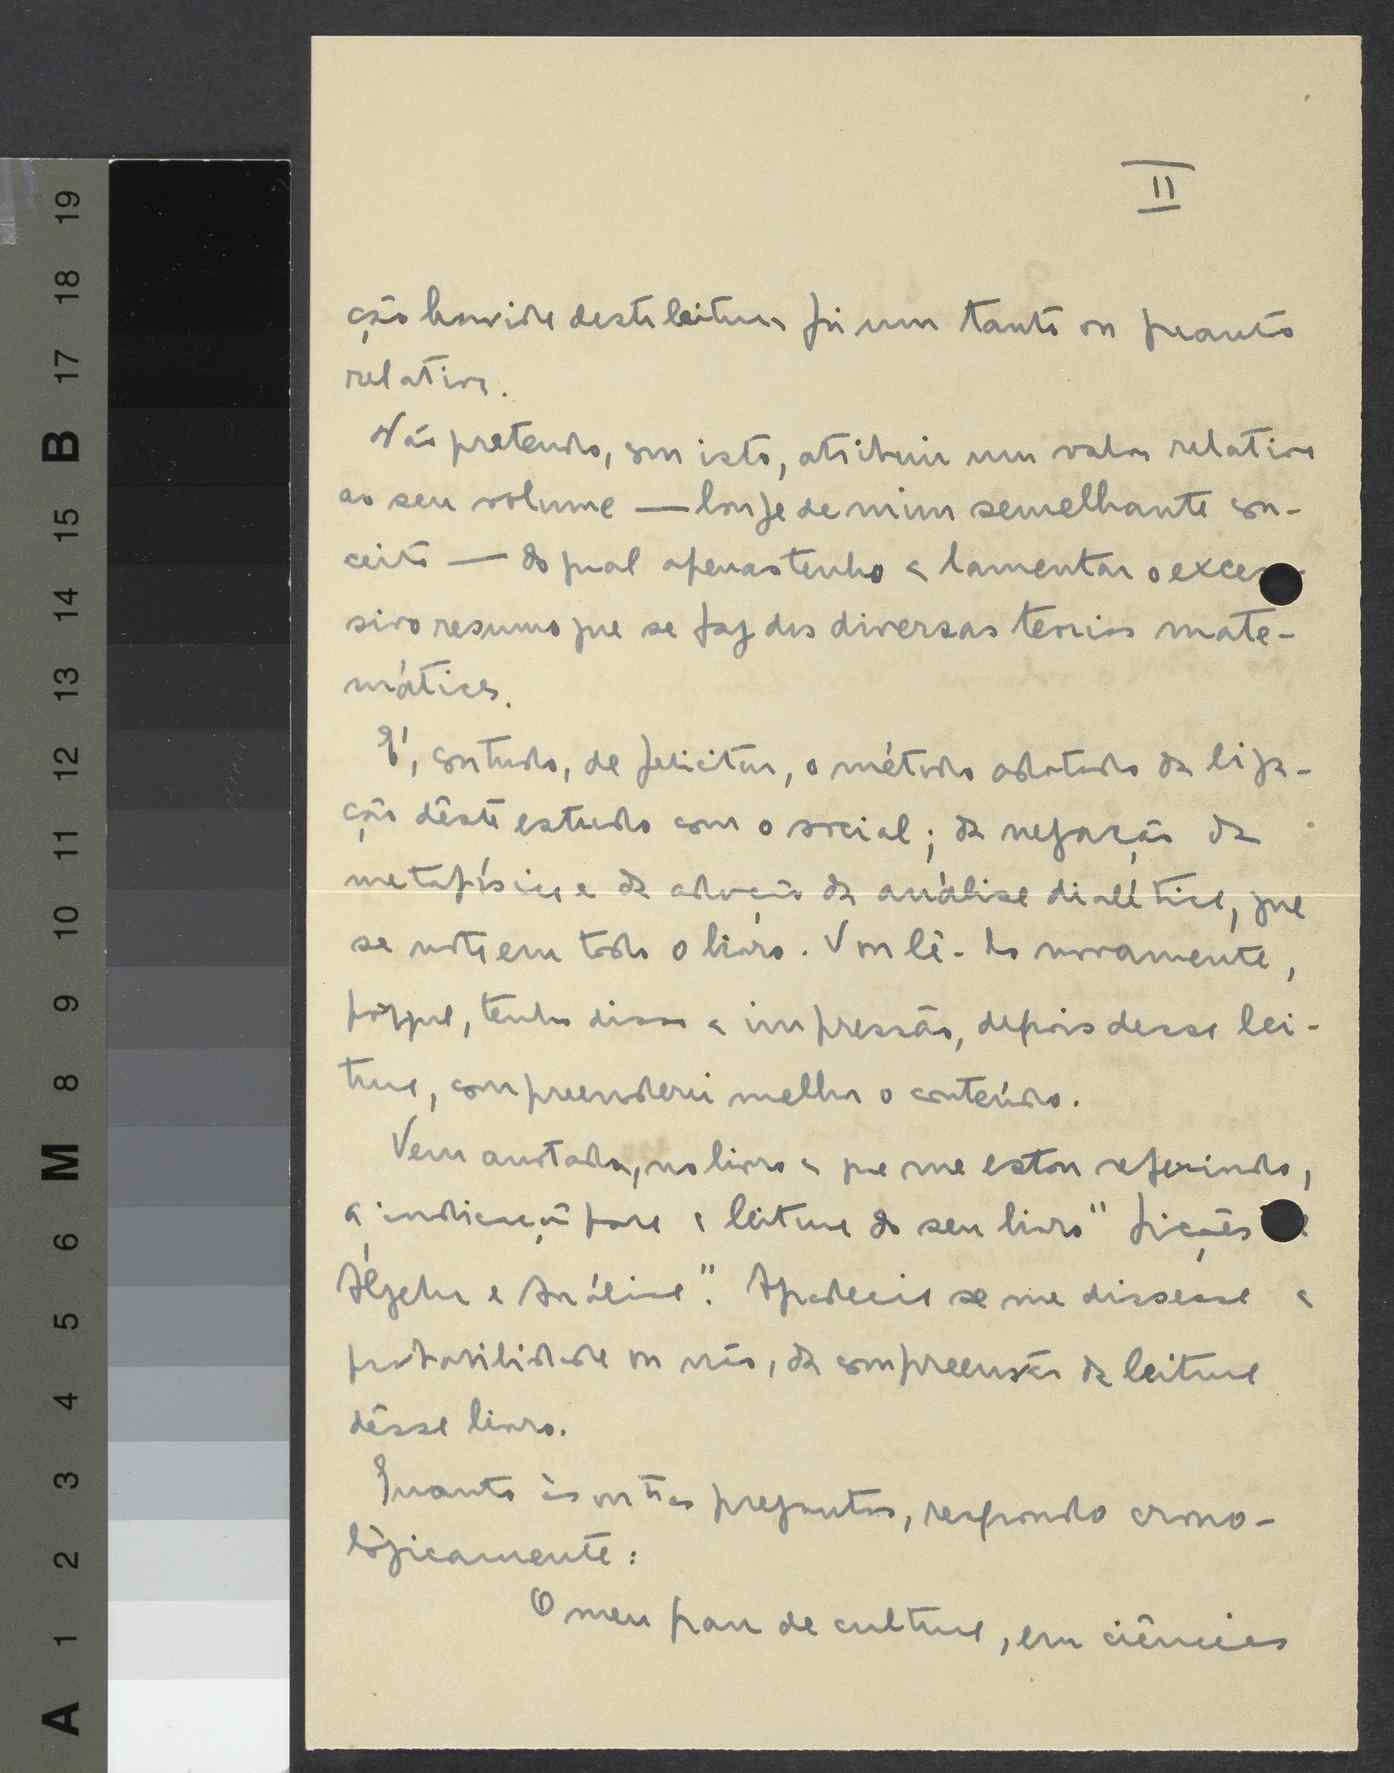 II
ção havida desta leitura foi um tanto ou quanto
relativa.
Não pretendo, com isto, atribuir um valor relativo
ao seu volume — longe de mim semelhante con-
ceito — do qual apenas tenho a lamentar o exces-
sivo resumo que se faz das diversas teorias mate-
máticas.
É, contudo, de felicitar, o método adotado da liga-
ção dêste estudo com o social; da negação da
metafísica e da adoção da análise dialética, que
se nota em todo o livro. Vou lê-lo novamente,
pòrque, tenho disso a impressão, depois dessa lei-
tura, compreenderei melhor o conteúdo.
Vem anotada, no livro a que me estou referindo,
a indicação para a leitura do seu livro "Lições
Álgebra e Análise". Agradecia se me dissesse a
probabilidade ou não, da compreensão da leitura
dêsse livro.
Quanto às outras preguntas, respondo crono-
lògicamente:
O meu grau de cultura, em ciências
19
18
17
B
15
14
13
12
11
10
9
8
M
6
5
4
3
2
1
A